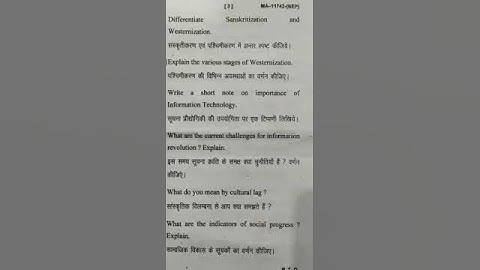 [ 3 ] MA-11743-(NEP)
Differentiate Sanskritization and
Westernization.
संस्कृतीकरण एवं पश्चिमीकरण में अन्तर स्पष्ट कीजिये।
Explain the various stages of Westernization.
पश्चिमीकरण की विभिन्न अवस्थाओं का वर्णन कीजिए।
Write a short note on importance of
Information Technology.
सूचना प्रौद्योगिकी की उपयोगिता पर एक टिप्पणी लिखिये।
What are the current challenges for information
revolution ? Explain.
इस समय सूचना क्रांति के समक्ष क्या चुनौतियाँ हैं ? वर्णन
कीजिए।
What do you mean by cultural lag ?
सांस्कृतिक विलम्बना से आप क्या समझते हैं ?
What are the indicators of social progress ?
Explain.
सामाजिक विकास के सूचकों का वर्णन कीजिए।